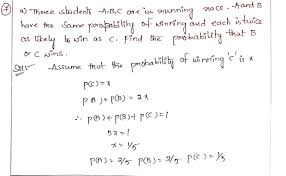 7 a) Three students A,B,C are in running race. A and B
have the same probability of winning and each is twice
as likely to win as C. Find the probability that B
or C wins.
Sol:- Assume that the probability of winning 'C' is x
P(C) = x
P(A) = P(B) = 2x
∴ P(A) + P(B) + P(C) = 1
5x = 1
x = 1/5
P(A) = 2/5 P(B) = 2/5 P(C) = 1/5